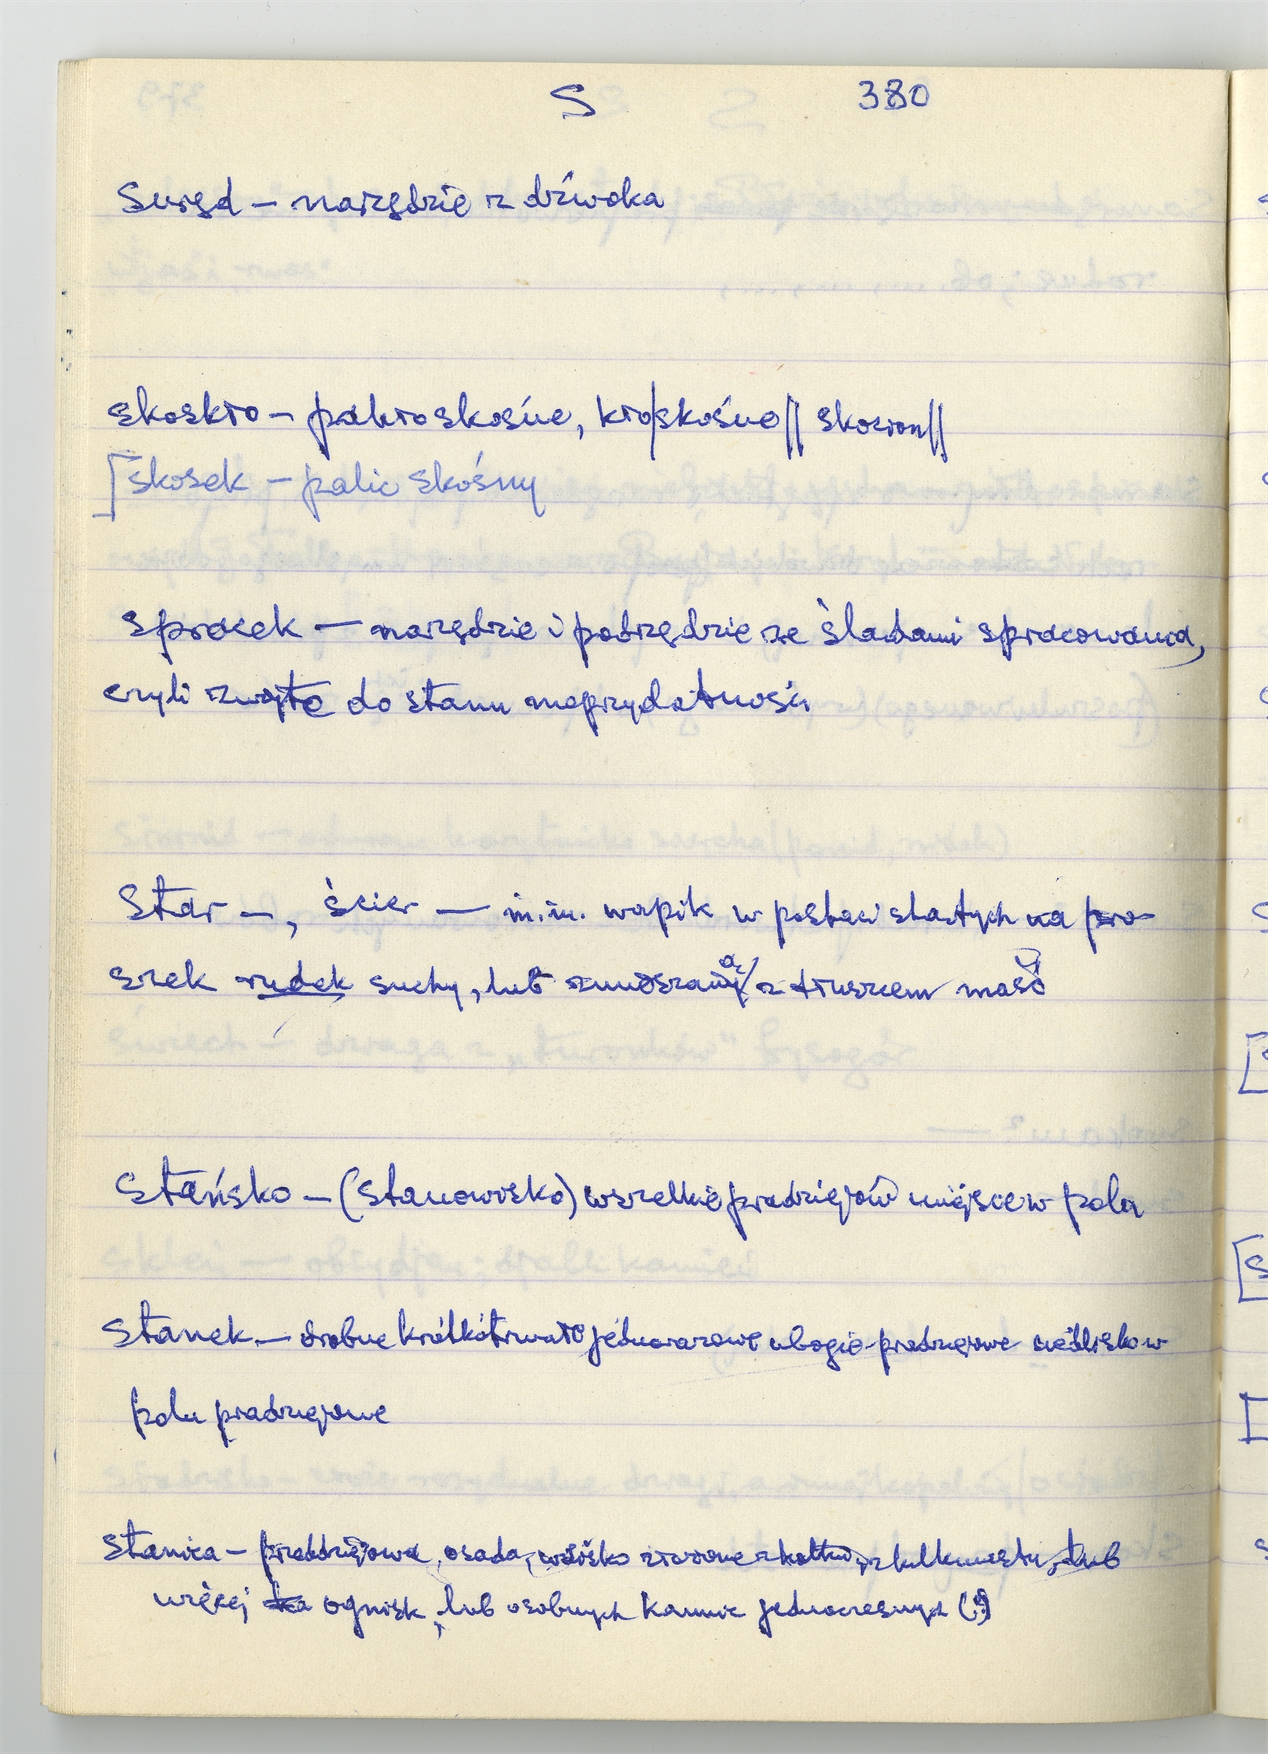 S 380
Surząd – narzędzie z dźwoka
skoskło – pakłoskośne, kło/skośne // skosion //
[skosek – palic skośny
sprasek – narzędzie i podrzędzie ze śladami spracowania,
czyli zużyte do stanu nieprzydatności
Star –, ścier – m.in. wapik w postaci startych na pro-
szek rudek suchy, lub zmieszaną z tłuszczem maść
Stańsko – (stanowisko) wszelkie pradziejów miejsce w polu
Stanek – drobne krótkotrwałe jednorazowe ubogie pradziejowe siedlisko w
polu pradziejowe
Stanica – pradziejowa osada, złożone z kilkunastu, lub
więcej ognisk, lub osobnych jednoczesnych (?)